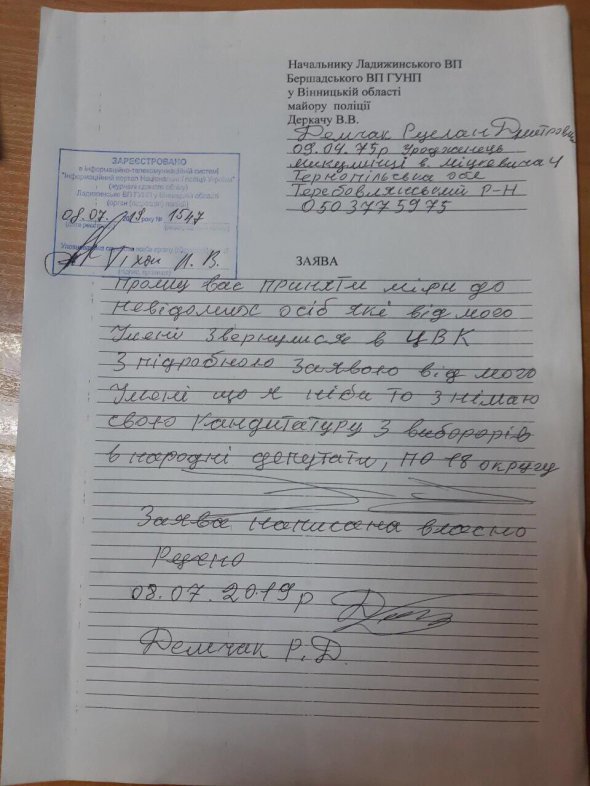 Начальнику Ладижинського ВП
Бершадського ВП ГУНП
у Вінницькій області
майору поліції
Деркачу В.В.
Демчак Руслан Дмитрович
09.04.75р Уродженець
микулинці в Міцкевича 4
Тернопільська обл
Теребовлянський Р-Н
0503775975
ЗАРЕЄСТРОВАНО
в інформаційно-телекомунікаційній системі
"Інформаційний портал Національної Поліції України"
(журналі єдиного обліку)
Ладижинське ВП ГУНП у Вінницькій області
(орган (підрозділ) поліції)
08.07. 19 року № 1547
(дата реєстрації)
Уповноважена особа
Тіхон
ЗАЯВА
Прошу вас приняти міри до
невідомих осіб які від мого
Імені звернулися в ЦВК
З підробною Заявою від мого
Імені що я ніби то знімаю
свою кандитатуру з виборорів
в народні депутати, по 18 округу
Заява написана власно
Ручно
08.07.2019р
Демчак Р.Д.